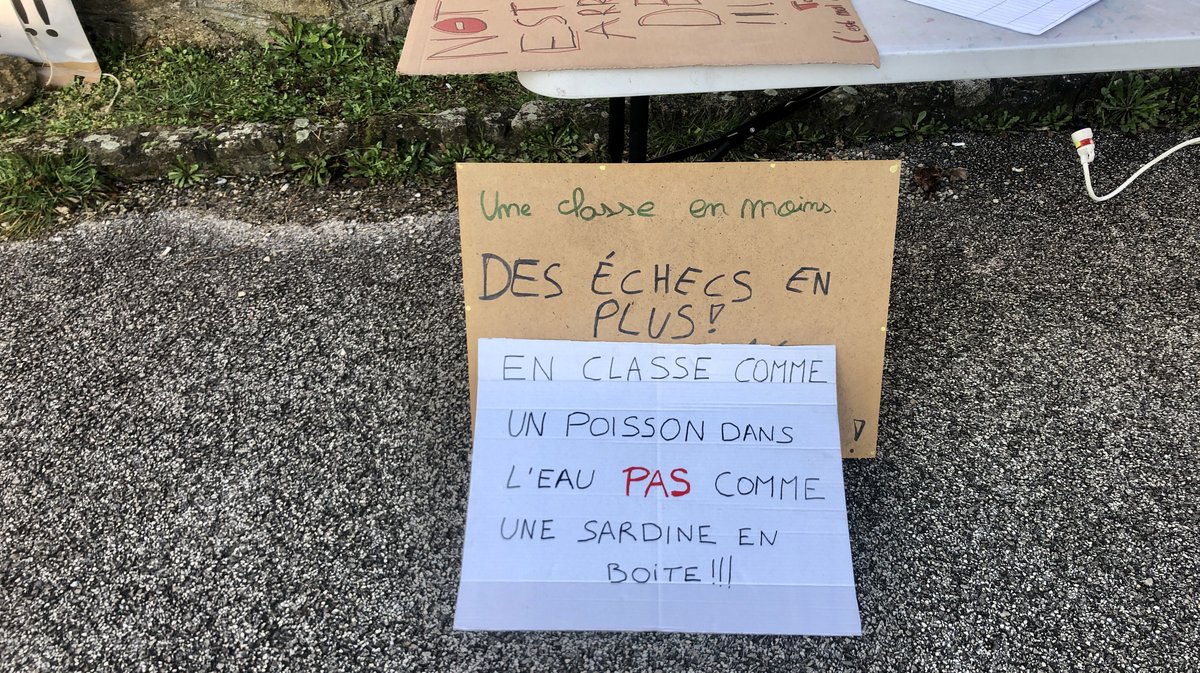 !!
NOT
EST
ARR
DE
!!!
Une classe en moins.
DES ÉCHECS EN
PLUS!
!
EN CLASSE COMME
UN POISSON DANS
L'EAU PAS COMME
UNE SARDINE EN
BOITE!!!